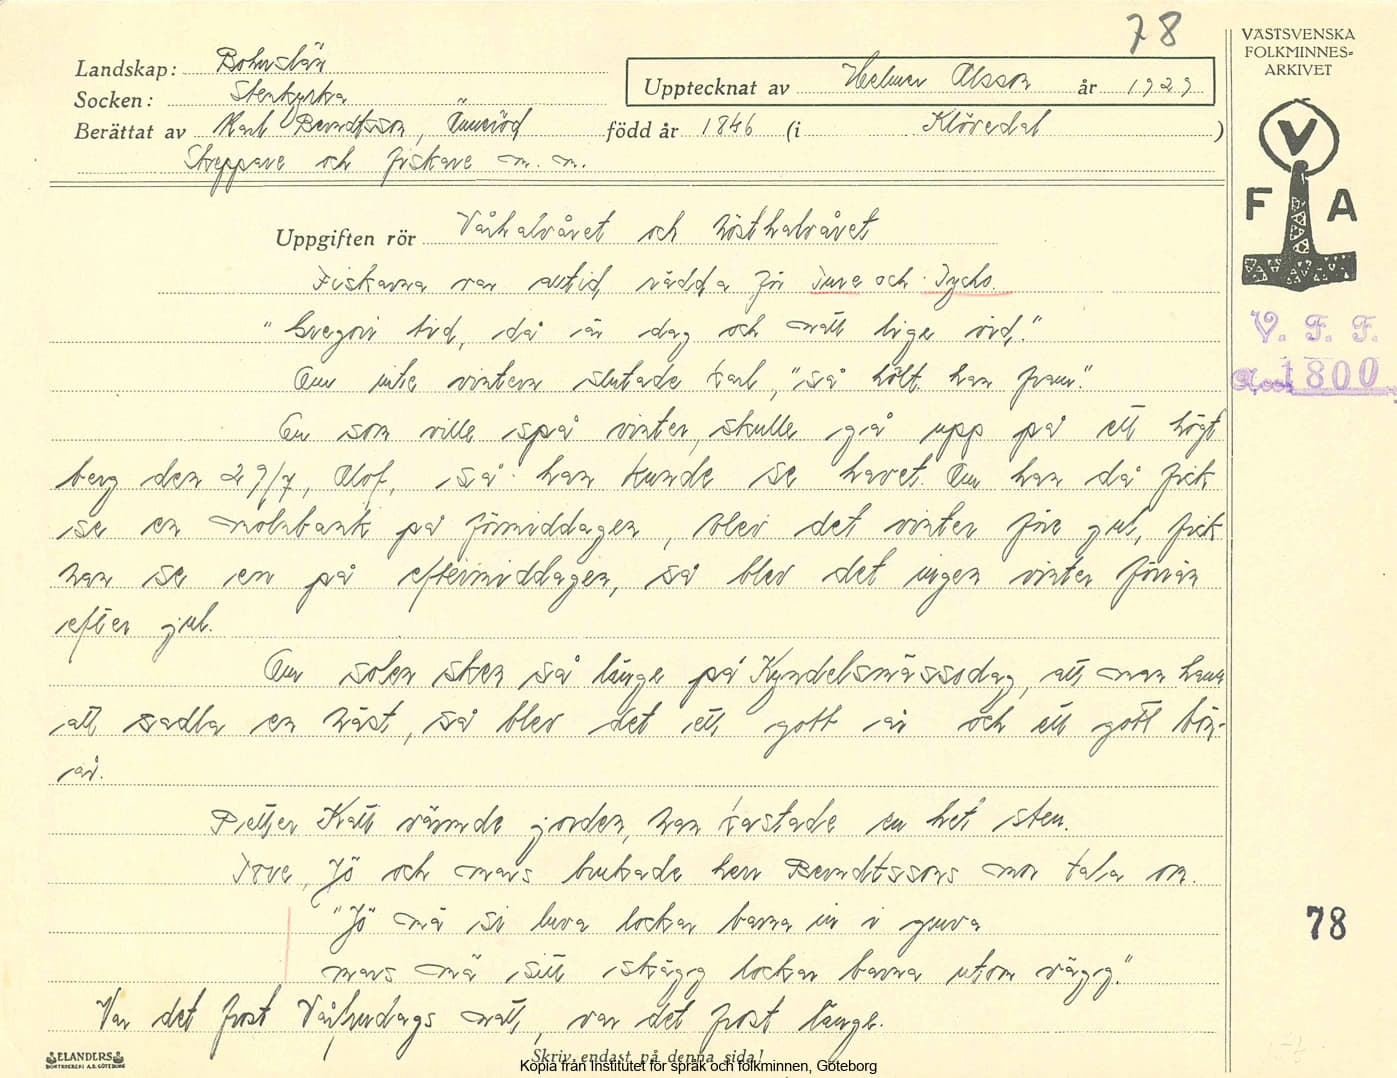 78
VÄSTSVENSKA
FOLKMINNES=
ARKIVET
Landskap: Bohuslän
Socken: Stenkyrka
Upptecknat av Helmer Olsson år 1929
Berättat av Karl Berndtsson, Önneröd född år 1846 (i Klövedal )
Skeppare och fiskare m. m.
V
F A
Uppgiften rör Vårhalvåret och hösthalvåret
Fiskarna var alltid rädda för Ture och Tycho.
"Gregori tid, då är dag och natt lige vid."
Om inte vintern slutade karl, "så hölt han fram".
En som ville spå vinter, skulle gå upp på ett högt
berg den 29/7, Olof, så han kunde se havet. Om han då fick
se en molnbank på förmiddagen, blev det vinter före jul, fick
han se en på eftermiddagen, så blev det ingen vinter förrän
efter jul.
Om solen sken så länge på Kyndelsmässodag, att man hann
att sadla en häst, så blev det ett gott år och ett gott bin-
år.
Petter Katt värmde jorden, han kastade en het sten.
Tove, Jö och mars brukade herr Berndtssons mor tala om.
"Jö mä si luva lockar barna in i gruva
mars mä sitt skägg lockar barna utom vägg."
Var det frost Vårfrudags natt, var det frost länge.
V. F. F.
Acc. 1800
78
ELANDERS
BOKTRYCKERI A.B. GÖTEBORG
Skriv endast på denna sida!
Kopia från Institutet för språk och folkminnen, Göteborg